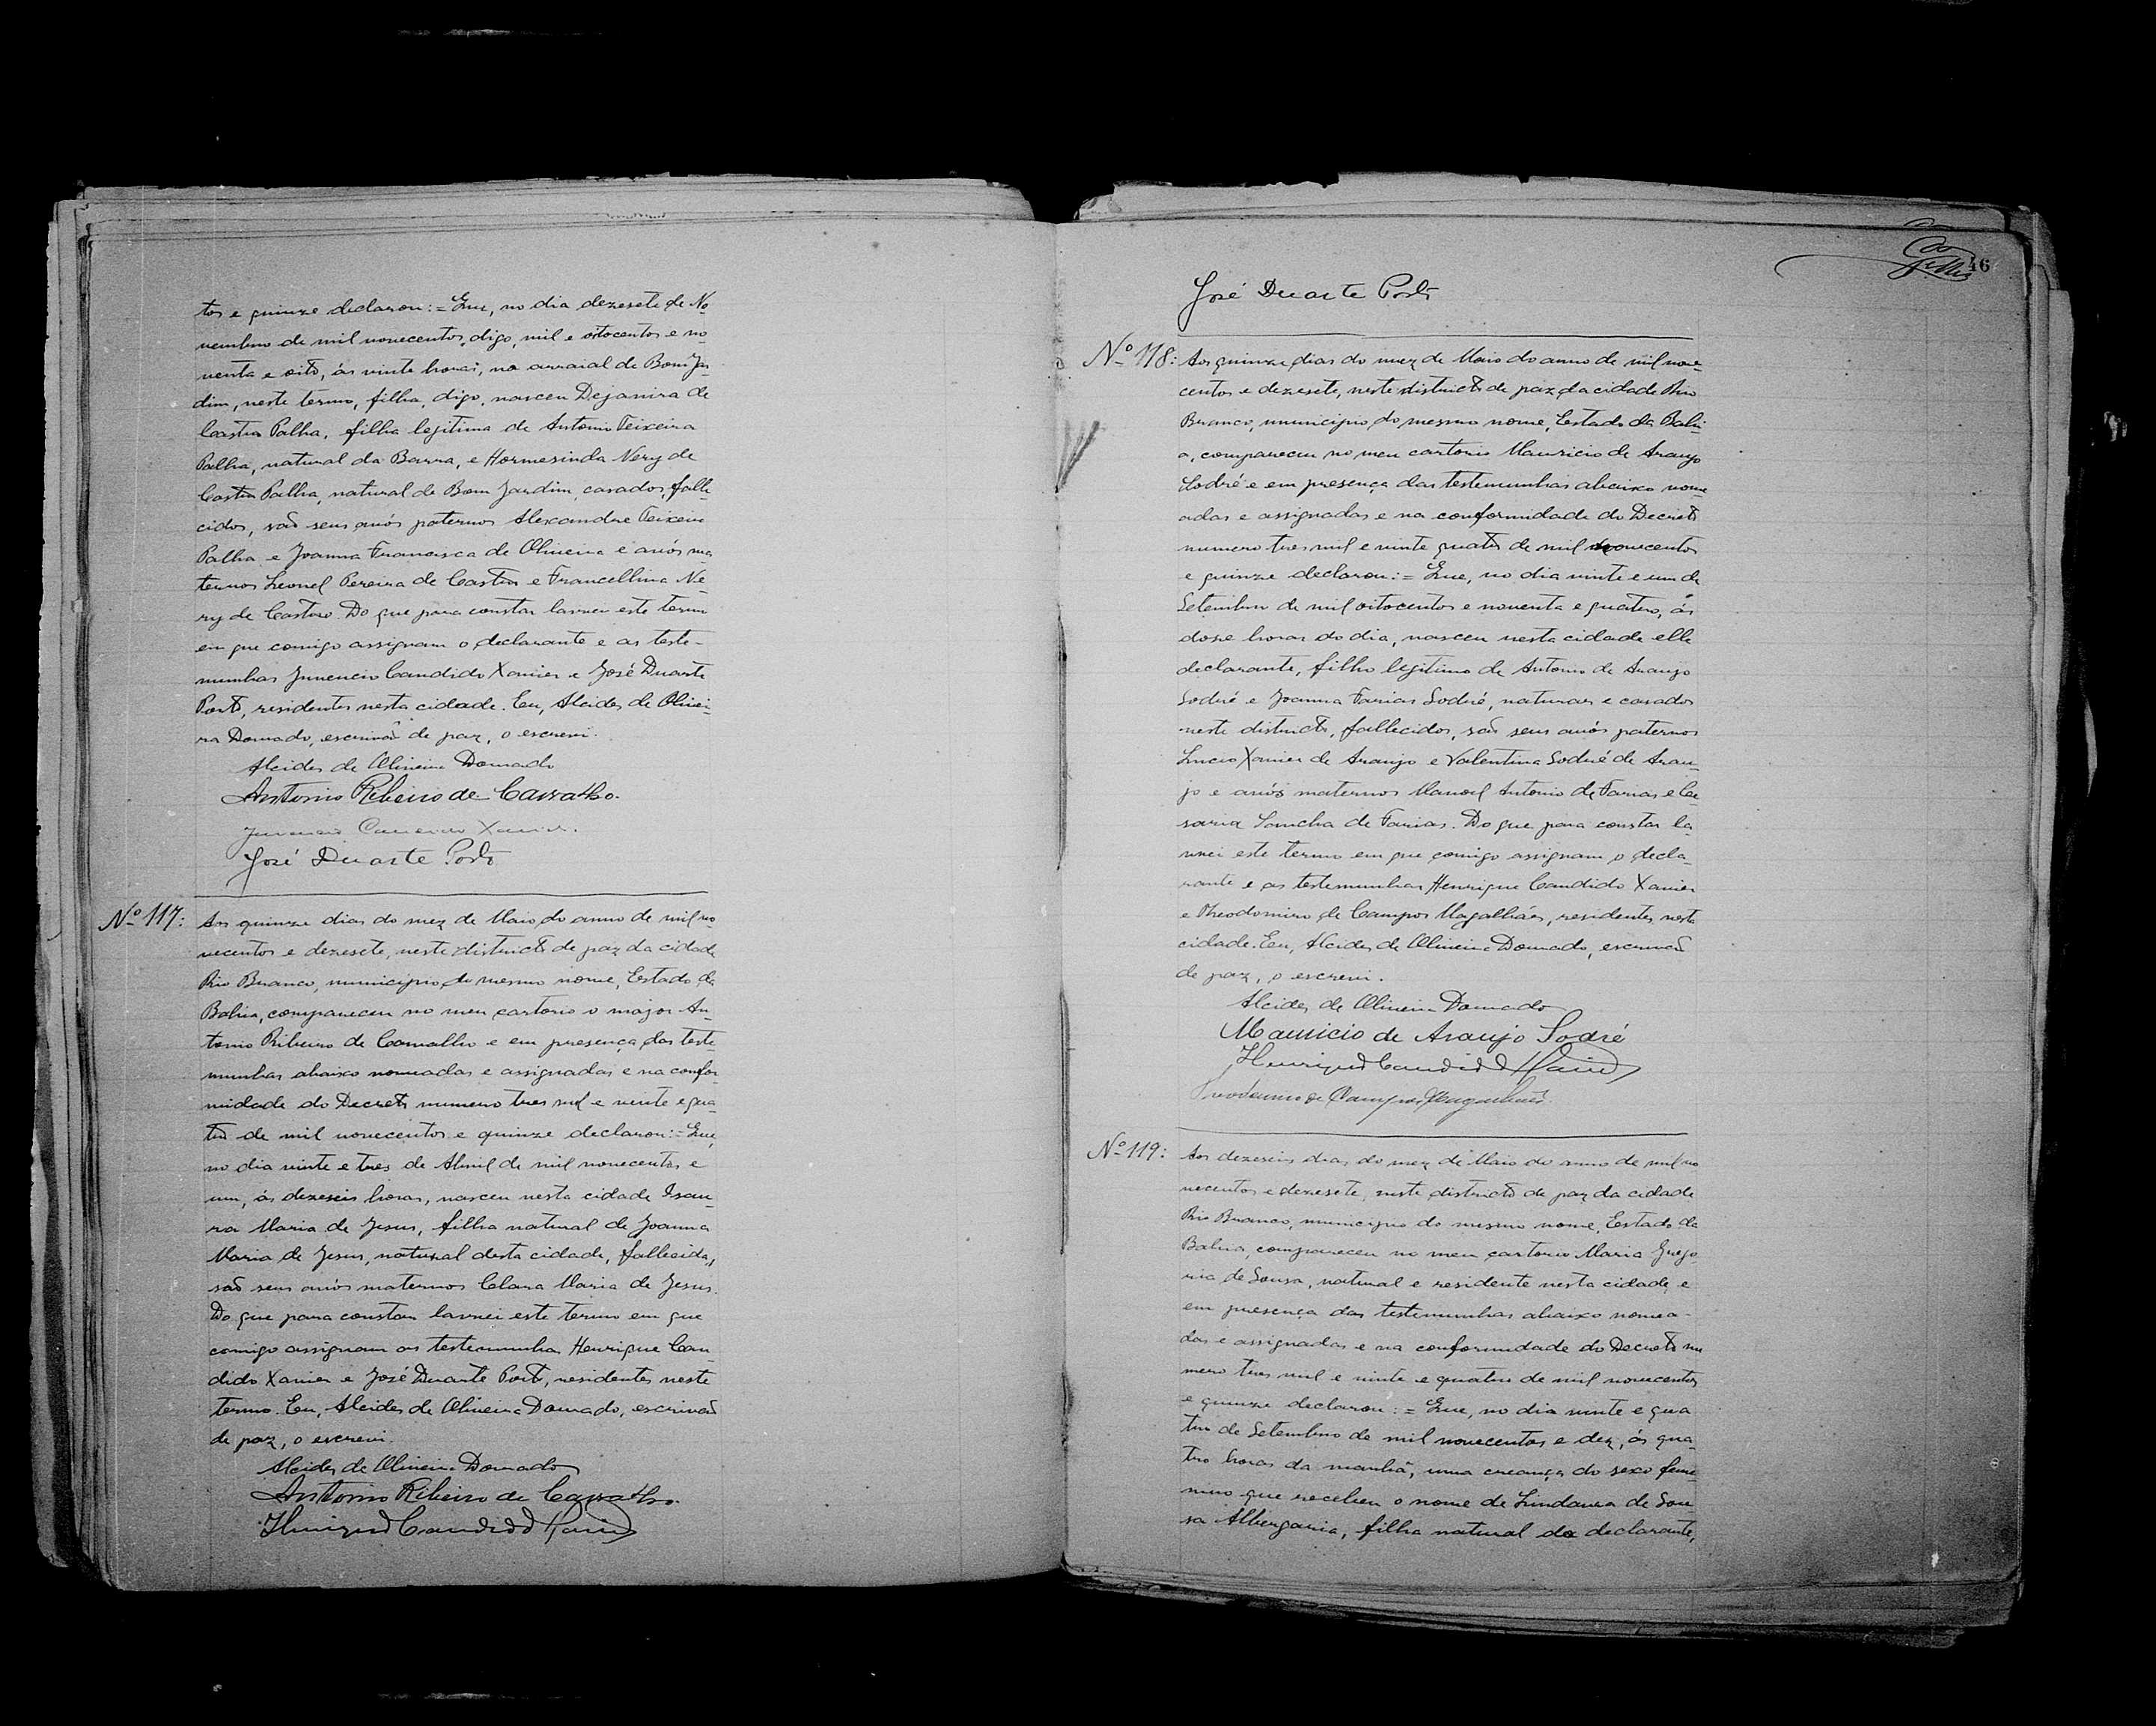 tos e quinze declarou:= Que, no dia dezesete de No-
vembro de mil novecentos, digo, mil e oitocentos e no-
venta e oito, ás vinte horas, no arraial de Bom Jar-
dim, neste termo, filha, digo, nasceu Dejanira de
Castro Palha, filha legitima de Antonio Teixeira
Palha, natural da Barra, e Hormesinda Nery de
Castro Palha, natural de Bom Jardim, casados, falle-
cidos, são seus avós paternos Alexandre Teixeira
Palha e Joanna Francisca de Oliveira e avós ma-
ternos Leonel Pereira de Castro e Francellina Ne-
ry de Castro. Do que para constar lavrei este termo
em que comigo assignam o declarante e as teste-
munhas Juvencio Candido Xavier e José Duarte
Porto, residentes nesta cidade. Eu, Alcides de Olivei-
ra Dourado, escrivão de paz, o escrevi.
Alcides de Oliveira Dourado
Antonio Ribeiro de Carvalho.
Juvencio Candido Xavier.
José Duarte Porto
Nº 117: Aos quinze dias do mez de Maio do anno de mil no-
vecentos e dezesete, neste districto de paz da cidade
Rio Branco, municipio do mesmo nome, Estado da
Bahia, compareceu no meu cartorio o major An-
tonio Ribeiro de Carvalho e em presença das teste-
munhas abaixo nomeadas e assignadas e na confor-
midade do Decreto numero tres mil e vinte e qua-
tro de mil novecentos e quinze declarou:= Que,
no dia vinte e tres de Abril de mil novecentos e
um, ás dezeseis horas, nasceu nesta cidade Isau-
ra Maria de Jesus, filha natural de Joanna
Maria de Jesus, natural desta cidade, fallecida,
são seus avós maternos Clara Maria de Jesus.
Do que para constar lavrei este termo em que
comigo assignam as testemunhas Henrique Can-
dido Xavier e José Duarte Porto, residentes neste
termo. Eu, Alcides de Oliveira Dourado, escrivão
de paz, o escrevi.
Alcides de Oliveira Dourado
Antonio Ribeiro de Carvalho.
Henrique Candido Xavier
46
José Duarte Porto
Nº 118: Aos quinze dias do mez de Maio do anno de mil nove-
centos e dezesete, neste districto de paz da cidade Rio
Branco, municipio do mesmo nome, Estado da Bahi-
a, compareceu no meu cartorio Mauricio de Araujo
Sodré e em presença das testemunhas abaixo nome-
adas e assignadas e na conformidade do Decreto
numero tres mil e vinte quatro de mil novecentos
e quinze declarou:= Que, no dia vinte e um de
Setembro de mil oitocentos e noventa e quatro, ás
doze horas do dia, nasceu nesta cidade elle
declarante, filho legitimo de Antonio de Araujo
Sodré e Joanna Farias Sodré, naturaes e casados
neste districto, fallecidos, são seus avós paternos
Lucio Xavier de Araujo e Valentina Sodré de Arau-
jo e avós maternos Manoel Antonio de Farias e Ce-
saria de Farias. Do que para constar la-
vrei este termo em que comigo assignam o decla-
rante e as testemunhas Henrique Candido Xavier
e Theodomiro de Campos Magalhães, residentes nesta
cidade. Eu, Alcides de Oliveira Dourado, escrivão
de paz, o escrevi.
Alcides de Oliveira Dourado
Mauricio de Araujo Sodré
Henrique Candido Xavier
Theodomiro de Campos Magalhães.
Nº 119: Aos dezeseis dias do mez de Maio do anno de mil no-
vecentos e dezesete, neste districto de paz da cidade
Rio Branco, municipio do mesmo nome, Estado da
Bahia, compareceu no meu cartorio Maria Grego-
ria de Sousa, natural e residente nesta cidade, e
em presença das testemunhas abaixo nomea-
das e assignadas e na conformidade do Decreto nu-
mero tres mil e vinte e quatro de mil novecentos
e quinze declarou:= Que, no dia vinte e qua-
tro de Setembro de mil novecentos e dez, ás qua-
tro horas da manhã, uma creança do sexo femi-
nino que recebeu o nome de Lindaura de Sou-
sa Albergaria, filha natural da declarante,